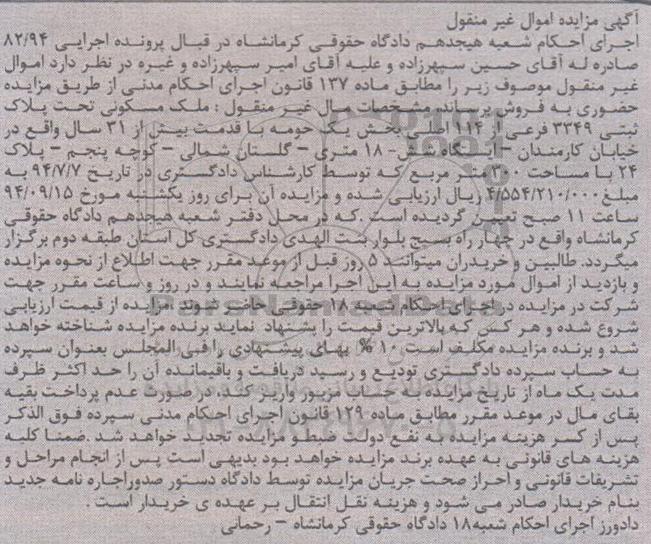 آگهی مزایده اموال غیر منقول
اجرای احکام شعبه هیجدهم دادگاه حقوقی کرمانشاه در قبال پرونده اجرایی ۸۲/۹۴
صادره له آقای حسین سپهرزاده و علیه آقای امیر سپهرزاده و غیره در نظر دارد اموال
غیر منقول موصوف زیر را مطابق ماده ۱۳۷ قانون اجرای احکام مدنی از طریق مزایده
حضوری به فروش برساند، مشخصات مال غیر منقول : ملک مسکونی تحت پلاک
ثبتی ۳۳۴۹ فرعی از ۱۱۴ اصلی بخش یک حومه با قدمت بیش از ۳۱ سال واقع در
خیابان کارمندان – ایستگاه – ۱۸ متری – گلستان شمالی – کوچه پنجم – پلاک
۲۴ با مساحت ۳۰۰ متر مربع که توسط کارشناس دادگستری در تاریخ ۹۴/۷/۷ به
مبلغ ۴/۵۵۴/۲۱۰/۰۰۰ ریال ارزیابی شده و مزایده آن برای روز یکشنبه مورخ ۹۴/۰۹/۱۵
ساعت ۱۱ صبح تعیین گردیده است .که در محل دفتر شعبه هیجدهم دادگاه حقوقی
کرمانشاه واقع در چهار راه بسیج بلوار بنت الهدی دادگستری کل استان طبقه دوم برگزار
میگردد. طالبین و خریدران میتوانند ۵ روز قبل از موعد مقرر جهت اطلاع از نحوه مزایده
و بازدید از اموال مورد مزایده به این اجرا مراجعه نمایند و در روز و ساعت مقرر جهت
شرکت در مزایده در اجرای احکام شعبه ۱۸ حقوقی حاضر شوند مزایده از قیمت ارزیابی
شروع شده و هر کس که بالاترین قیمت را پشنهاد نماید برنده مزایده شناخته خواهد
شد و برنده مزایده مکلف است ۱۰ % بهای پیشنهادی را فی المجلس بعنوان سپرده
به حساب سپرده دادگستری تودیع و رسید دریافت و باقیمانده آن را حد اکثر ظرف
مدت یک ماه از تاریخ مزایده به حساب مزبور واریز کند، در صورت عدم پرداخت بقیه
بقای مال در موعد مقرر مطابق ماده ۱۲۹ قانون اجرای احکام مدنی سپرده فوق الذکر
پس از کسر هزینه مزایده به نفع دولت ضبط و مزایده تجدید خواهد شد .ضمنا کلیه
هزینه های قانونی به عهده برند مزایده خواهد بود بدیهی است پس از انجام مراحل و
تشریفات قانونی و احراز صحت جریان مزایده توسط دادگاه دستور صدوراجاره نامه جدید
بنام خریدار صادر می شود و هزینه نقل انتقال بر عهده ی خریدار است .
دادورز اجرای احکام شعبه۱۸ دادگاه حقوقی کرمانشاه – رحمانی
ParsNamadData